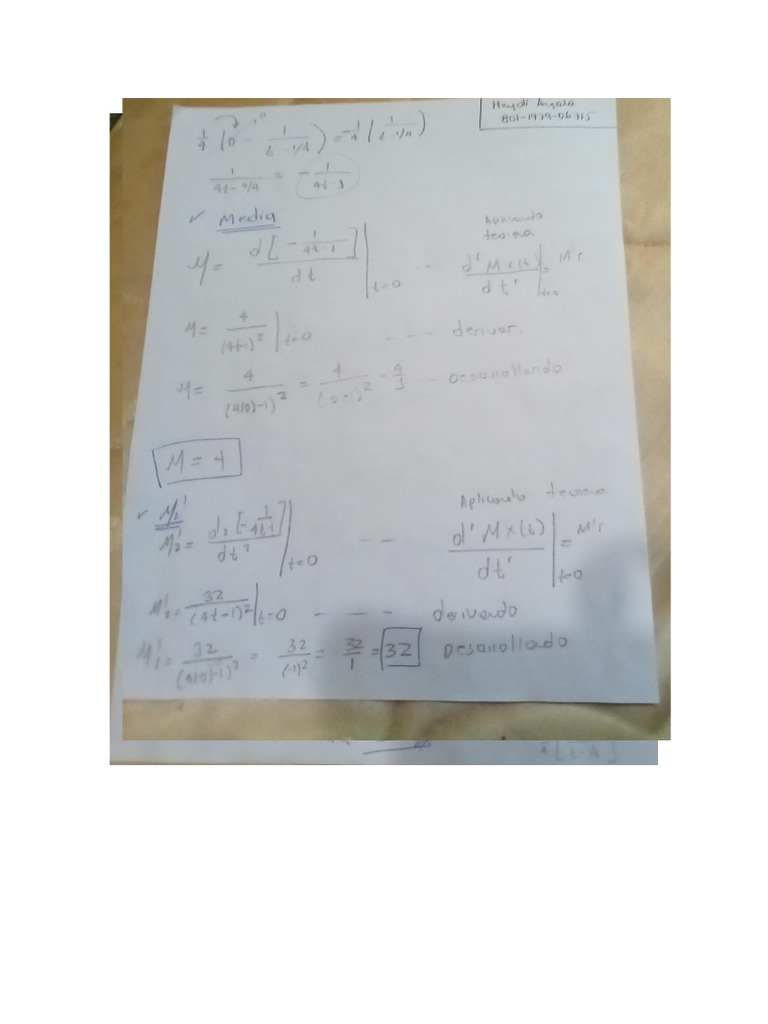 Heydi Ayala
801-1979-06715
1/4 (0 - 1/(t - 1/4)) = -1/4 (1/(t - 1/4))
1/(4t - 4/4) = - 1/(4t-1)
✓ Media
Aplicando
teorema
M = d[- 1/(4t-1)]/dt |t=0 -- d^r Mx(t)/dt^r |t=0 = M'r
M = 4/(4t-1)² |t=0 ---- derivar.
M = 4/(4(0)-1)² = 4/(0-1)² = 4/1 -- Desarrollando
M = 4
✓ M2'
Aplicando teorema
M2' = d2[- 1/(4t-1)]/dt² |t=0 --- d^r Mx(t)/dt^r |t=0 = M'r
M2' = 32/(4t-1)² |t=0 ---- derivando
M2' = 32/(4(0)-1)² = 32/(-1)² = 32/1 = 32 Desarrollado